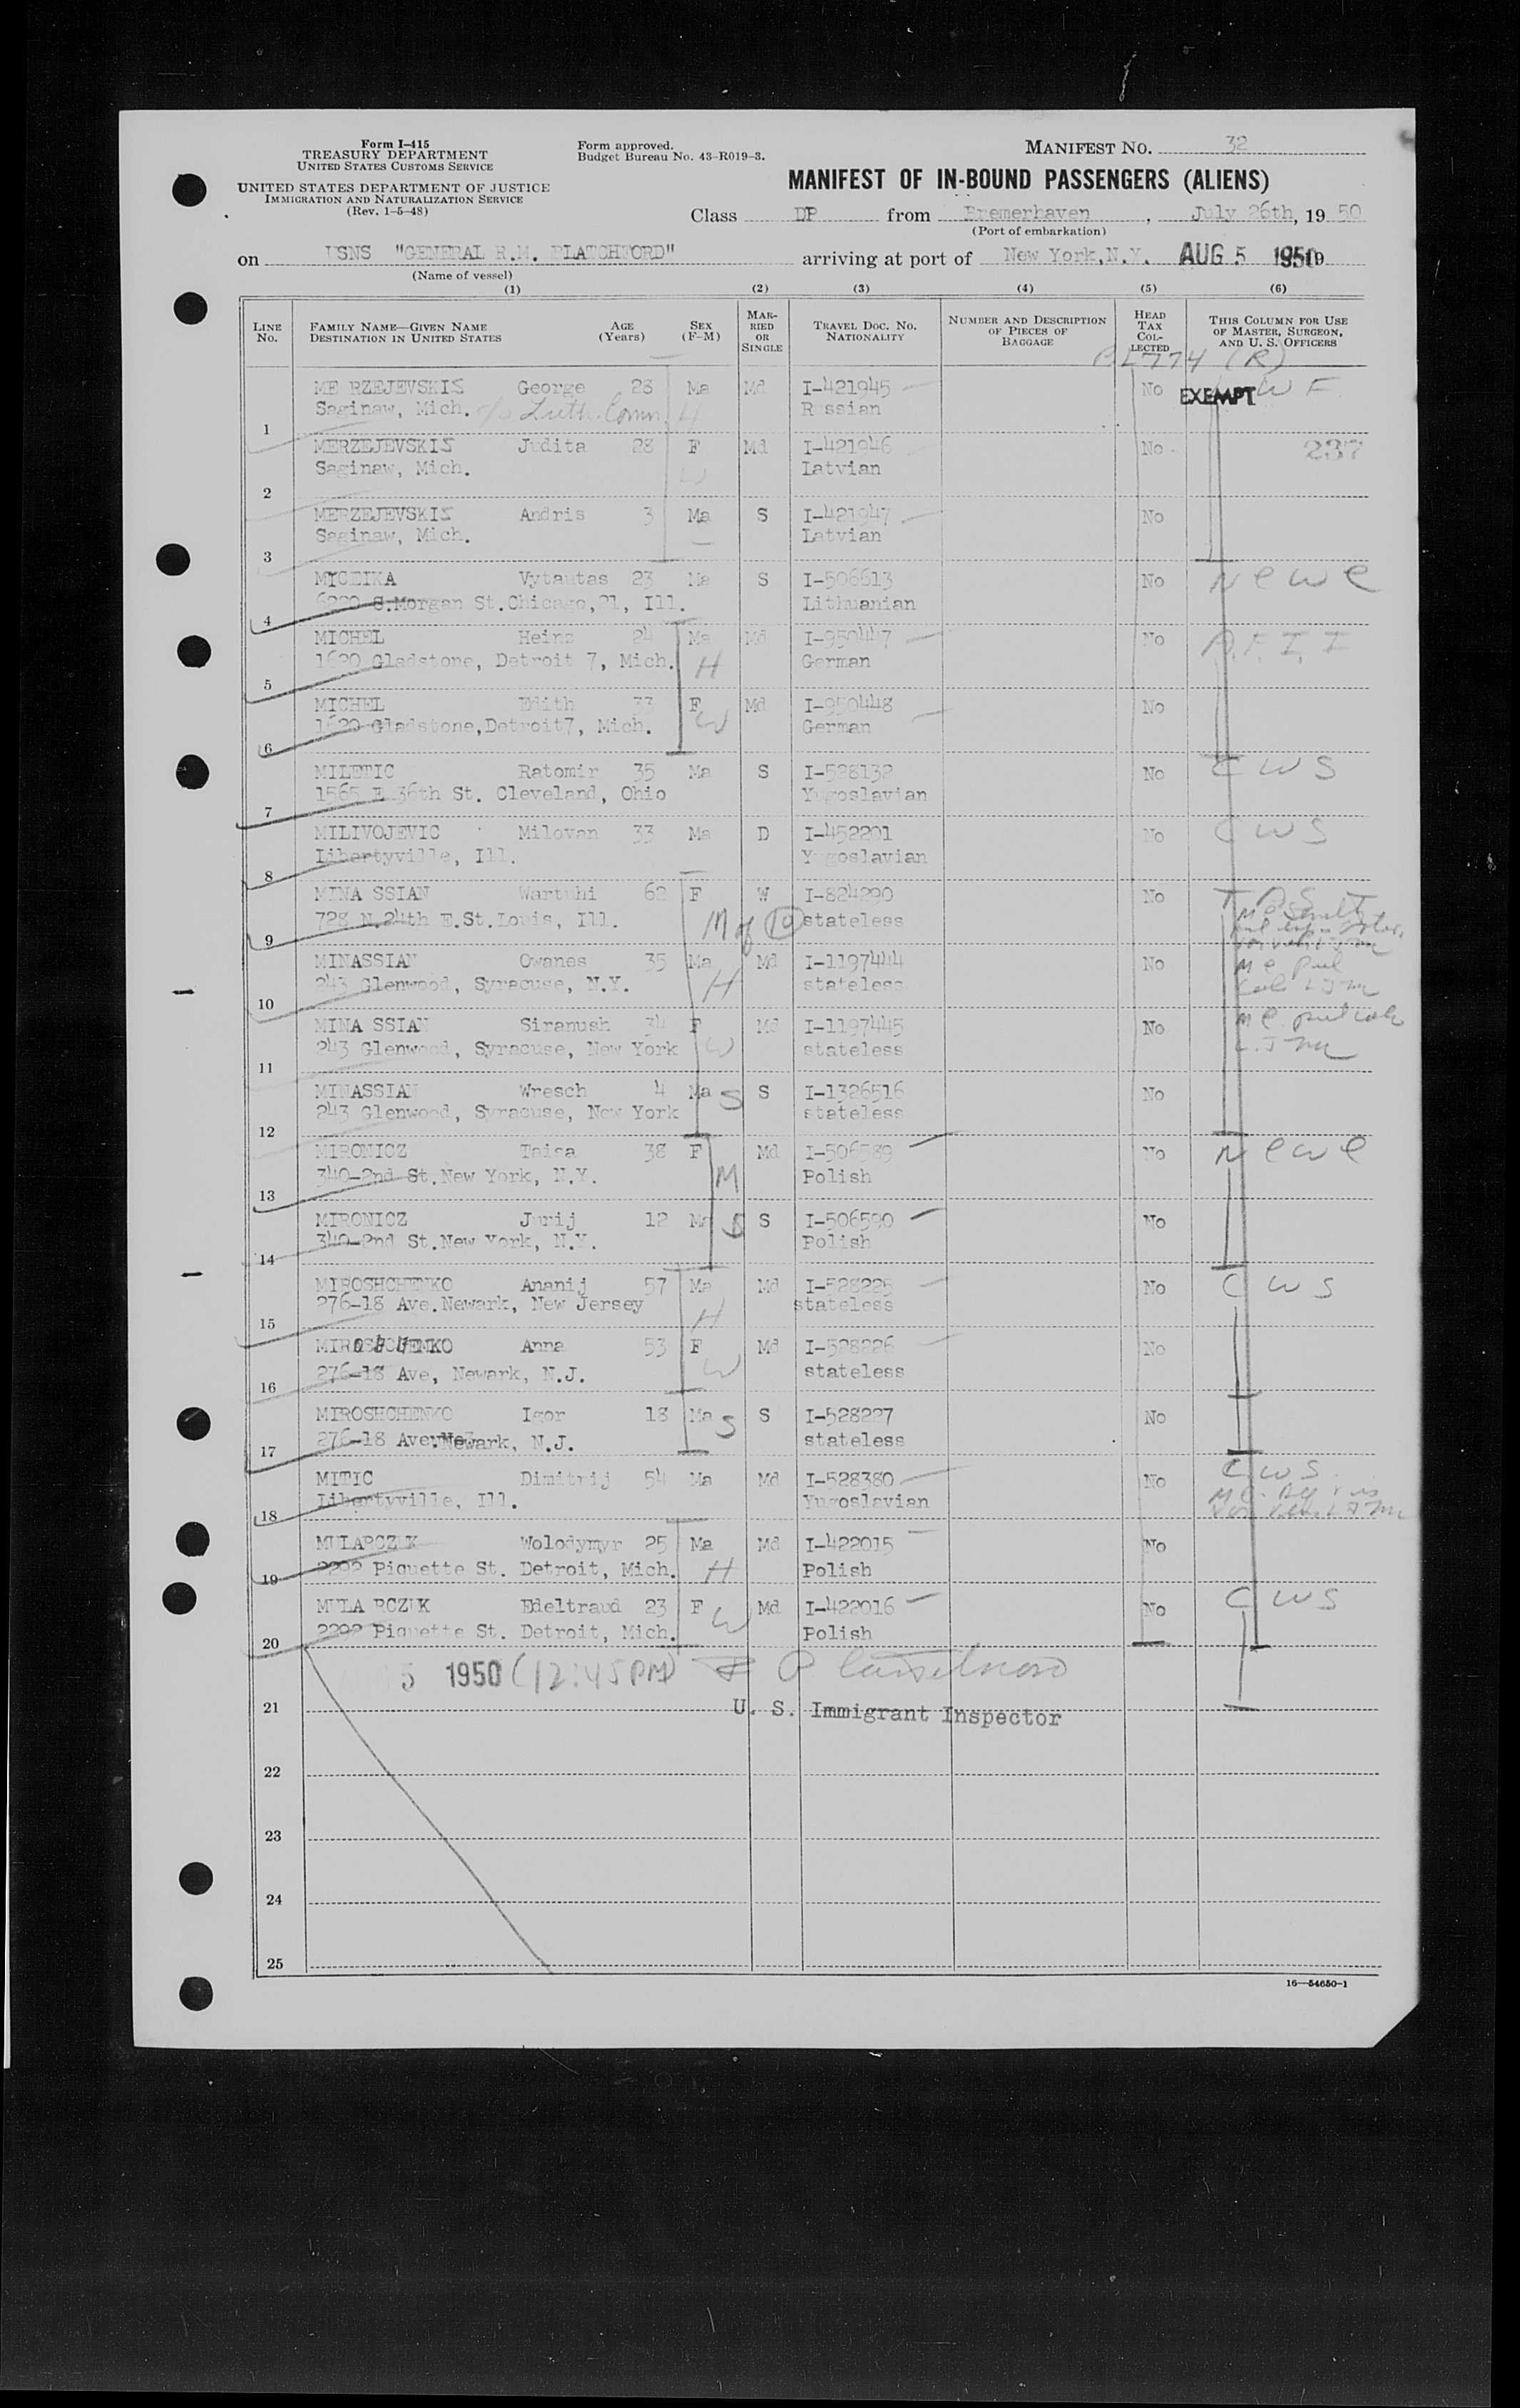 Form I-415
TREASURY DEPARTMENT
UNITED STATES CUSTOMS SERVICE
UNITED STATES DEPARTMENT OF JUSTICE
IMMIGRATION AND NATURALIZATION SERVICE
(Rev. 1-5-48)
Form approved.
Budget Bureau No. 43-R019-3.
MANIFEST NO. 32
MANIFEST OF IN-BOUND PASSENGERS (ALIENS)
Class DP from Bremerhaven, July 26th, 19 50
(Port of embarkation)
on USNS "GENERAL R.M. BLATCHFORD" arriving at port of New York, N.Y. AUG 5 1950
(Name of vessel)
(1) (2) (3) (4) (5) (6)
LINE NO. FAMILY NAME—GIVEN NAME DESTINATION IN UNITED STATES AGE (Years) SEX (F-M) MARRIED OR SINGLE TRAVEL DOC. NO. NATIONALITY NUMBER AND DESCRIPTION OF PIECES OF BAGGAGE HEAD TAX COLLECTED THIS COLUMN FOR USE OF MASTER, SURGEON, AND U. S. OFFICERS
PL774 (R)
ME RZEJEVSKIS George 28 Ma Md I-421945 No EXEMPT W F
1 Saginaw, Mich. c/o Luth. Comm. H Russian
MERZEJEVSKIS Judita 28 F Md I-421946 No 237
2 Saginaw, Mich. W Latvian
MERZEJEVSKIS Andris 3 Ma S I-421947 No
3 Saginaw, Mich. Latvian
MICEIKA Vytautas 23 Ma S I-506613 No N C W C
4 6220 S.Morgan St.Chicago,21, Ill. Lithuanian
MICHEL Heinz 24 Ma Md I-950447 No
5 1620 Gladstone, Detroit 7, Mich. H German
MICHEL Edith 33 F Md I-950448 No
6 1620 Gladstone,Detroit7, Mich. W German
MILETIC Ratomir 35 Ma S I-528132 No C W S
7 1565 E 36th St. Cleveland, Ohio Yugoslavian
MILIVOJEVIC Milovan 33 Ma D I-452201 No C W S
8 Libertyville, Ill. Yugoslavian
MINA SSIAN Wartuhi 62 F W I-824290 No
9 728 N.24th E.St.Louis, Ill. M of 10 stateless
MINASSIAN Owanes 35 Ma Md I-1197444 No
10 243 Glenwood, Syracuse, N.Y. H stateless
MINA SSIAN Siranush 34 F Md I-1197445 No
11 243 Glenwood, Syracuse, New York W stateless
MINASSIAN Wresch 4 Ma S S I-1326516 No
12 243 Glenwood, Syracuse, New York stateless
MIRONICZ Taisa 38 F Md I-506589 No N C W C
13 340-2nd St.New York, N.Y. M Polish
MIRONICZ Jurij 12 Ma S S I-506590 No
14 340-2nd St.New York, N.Y. Polish
MIROSHCHENKO Ananij 57 Ma Md I-528225 No C W S
15 276-18 Ave.Newark, New Jersey H stateless
Anna 53 F Md I-528226 No
16 276-18 Ave, Newark, N.J. W stateless
MIROSHCHENKO Igor 18 Ma S S I-528227 No
17 276-18 Ave.Newark, N.J. stateless
MITIC Dimitrij 54 Ma Md I-528380 No C W S
18 Libertyville, Ill. Yugoslavian
MULARCZUK Wolodymyr 25 Ma Md I-422015 No
19 2292 Piquette St. Detroit, Mich. H Polish
MULA RCZUK Edeltraud 23 F Md I-422016 No C W S
20 2292 Piquette St. Detroit, Mich. W Polish
5 1950 (12:45 PM)
21 U. S. Immigrant Inspector
22
23
24
25
16—54650-1